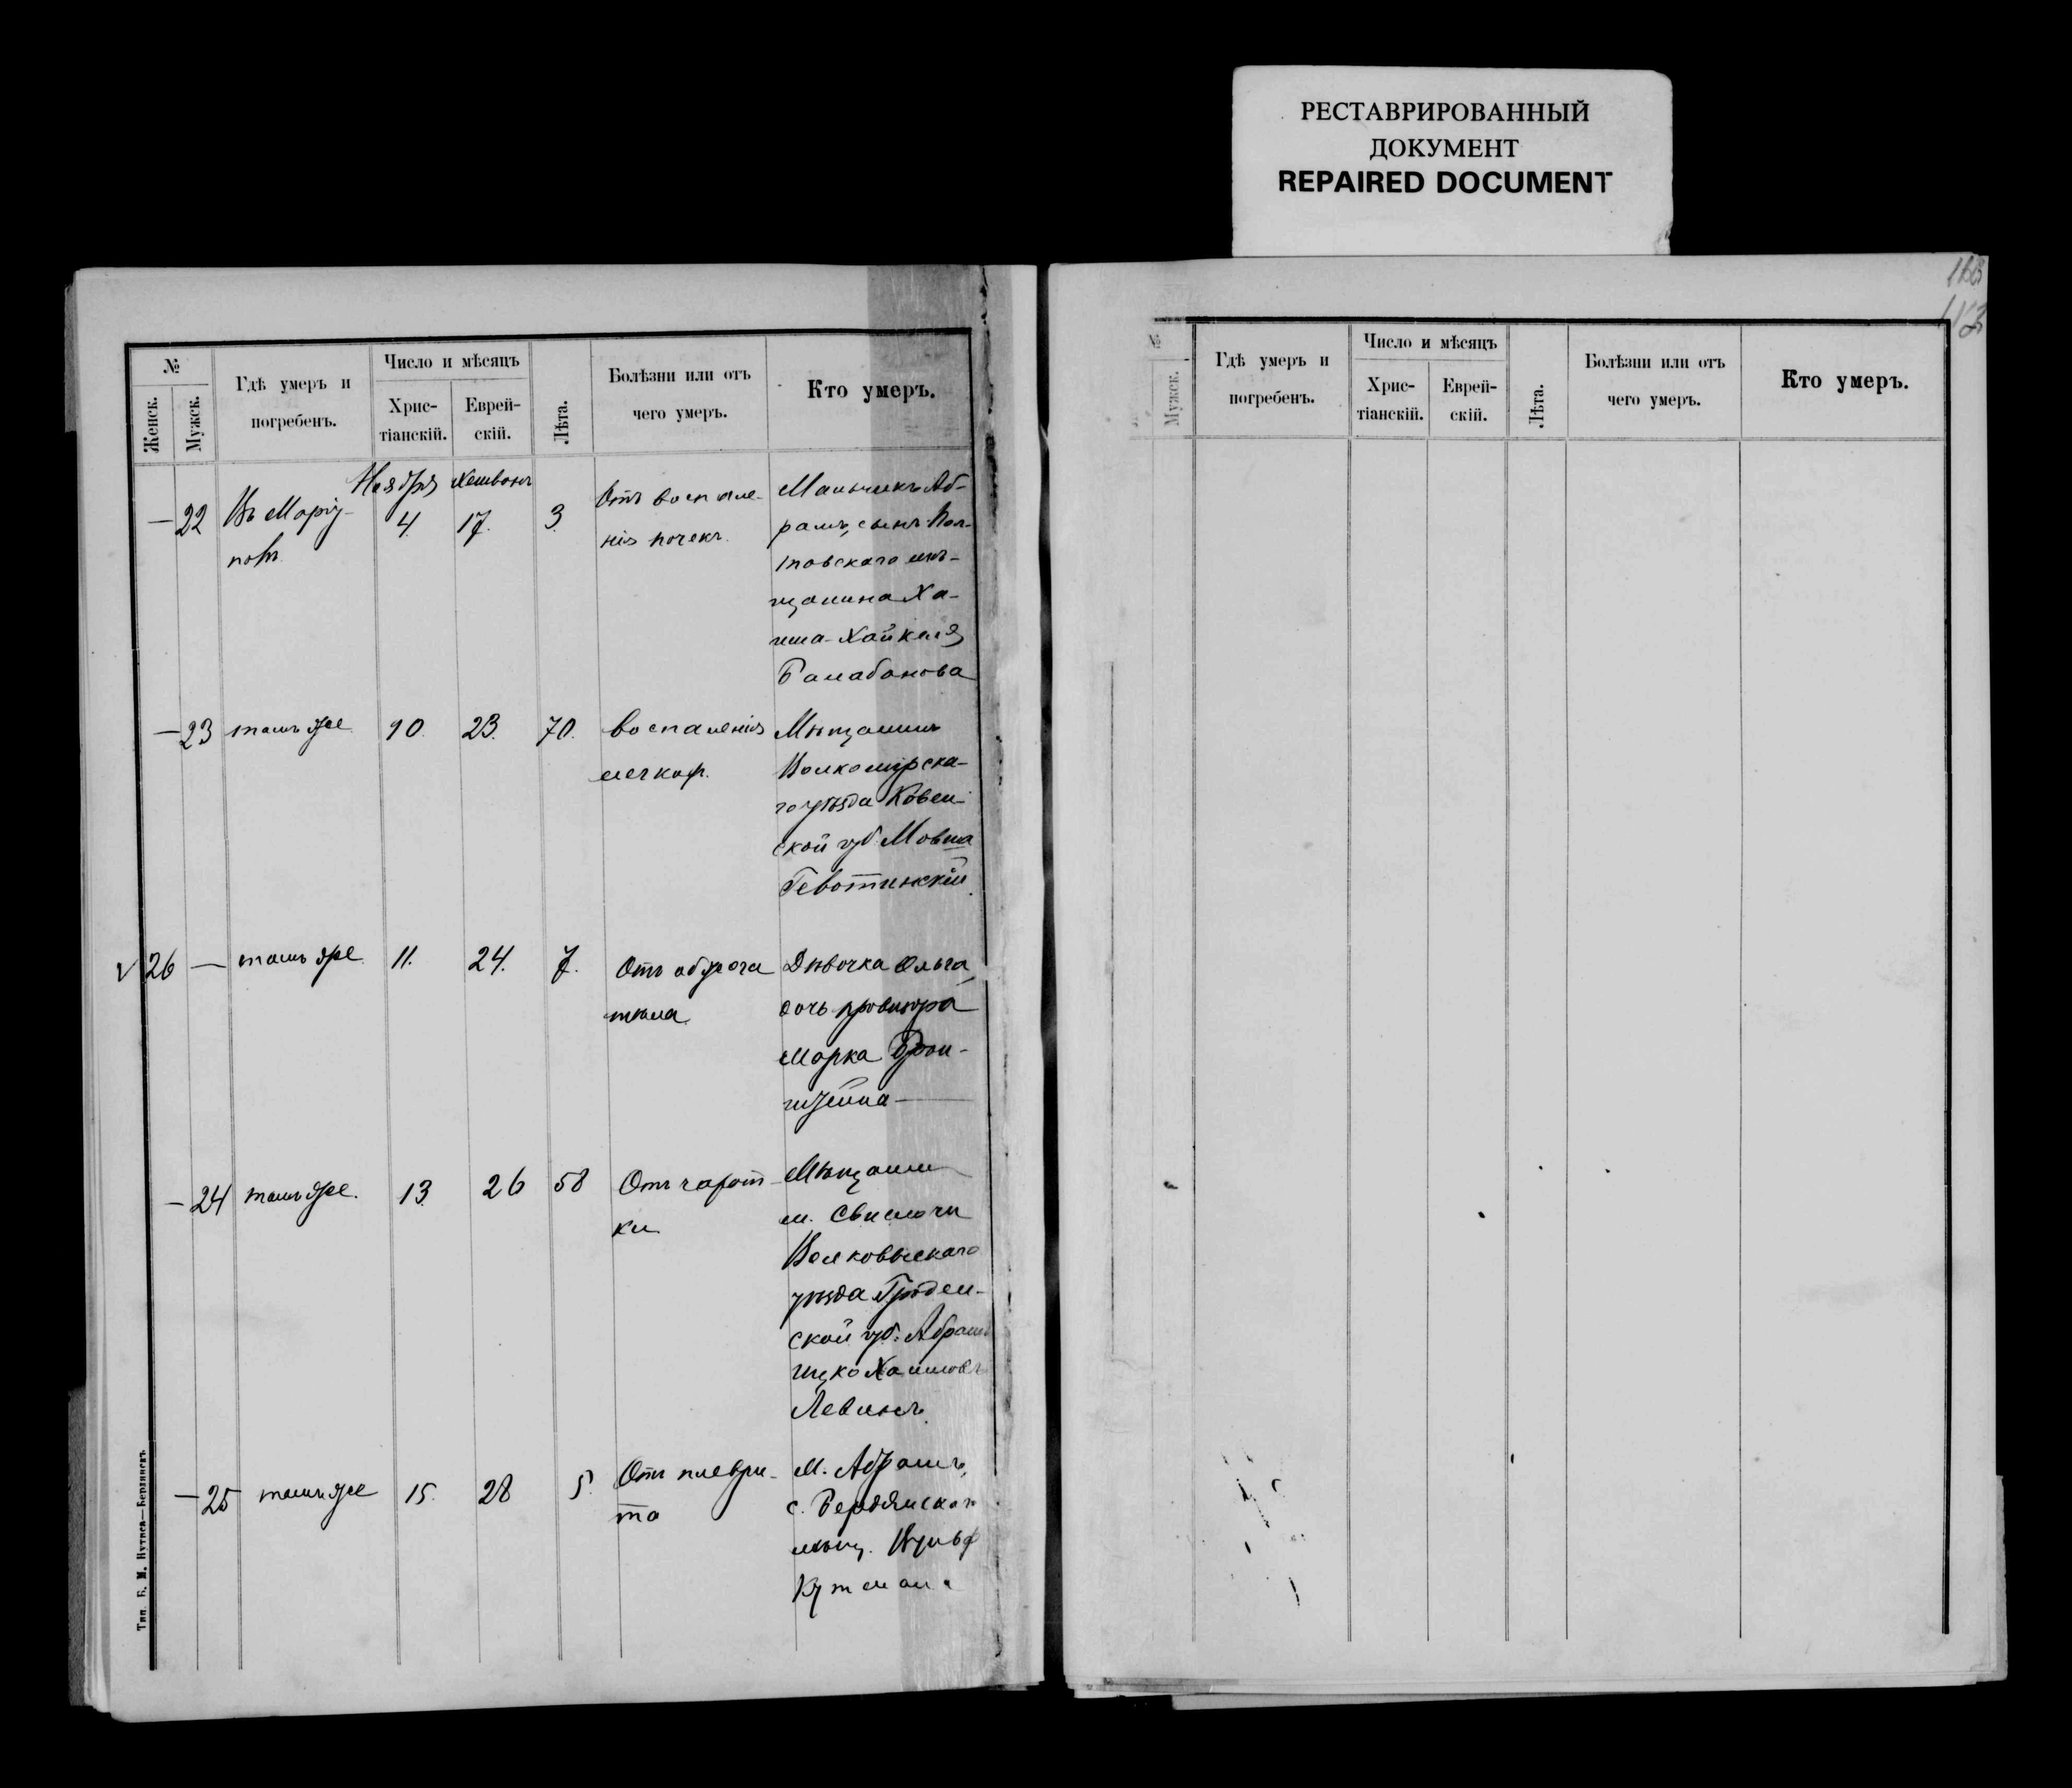 РЕСТАВРИРОВАННЫЙ
ДОКУМЕНТ
REPAIRED DOCUMENT
№
Женск.
Мужск.
Гдѣ умеръ и
погребенъ.
Число и мѣсяцъ
Хрис-
тіанскій.
Еврей-
скій.
Лѣта.
Болѣзни или отъ
чего умеръ.
Кто умеръ.
Ноября Хешвонъ
— 22 Въ Маріу-
полѣ
4. 17. 3.
Отъ воспале-
нія почекъ.
Мальчикъ Аб-
рамъ, сынъ Пол-
товскаго мѣ-
щанина Ха-
има-Хайкеля
Балабанова
— 23 тамъ же 10. 23. 70.
воспаленія
легкихъ.
Мѣщанинъ
Волкомирска-
го уѣзда Ковен-
ской губ. Мовша
26 — тамъ же 11. 24. 7.
Отъ обжога
тѣла
Дѣвочка Ольга,
дочь провизора
Марка
— 24 тамъ же. 13. 26 58
Отъ чахот-
ки
Мѣщанин
м. Свислочи
Волковыскаго
уѣзда Гроден-
ской губ. Абрамъ
Ицко Хаимовъ
Левинъ.
— 25 тамъ же 15. 28 5.
Отъ плеври-
та
М. Абрамъ,
с. Бердянскаго
мѣщ. Вульф
Кутмана
Тип. Б. М. Нутиса—Бердянскъ
№
Мужск.
Гдѣ умеръ и
погребенъ.
Число и мѣсяцъ
Хрис-
тіанскій.
Еврей-
скій.
Лѣта.
Болѣзни или отъ
чего умеръ.
Кто умеръ.